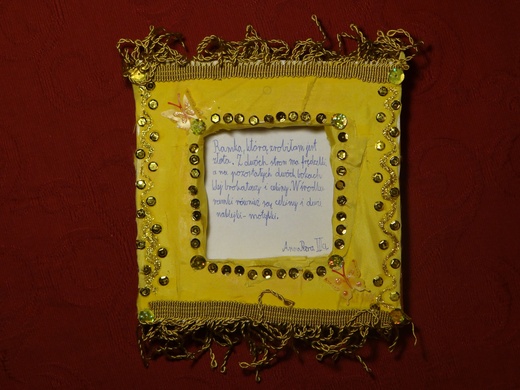 Ramka, którą zrobiłam jest
złota. Z dwóch stron ma frędzelki
a na pozostałych dwóch bokach
klej brokatowy i cekiny. W środku
ramki również są cekiny i dwie
naklejki - motylki.
Anna IIa